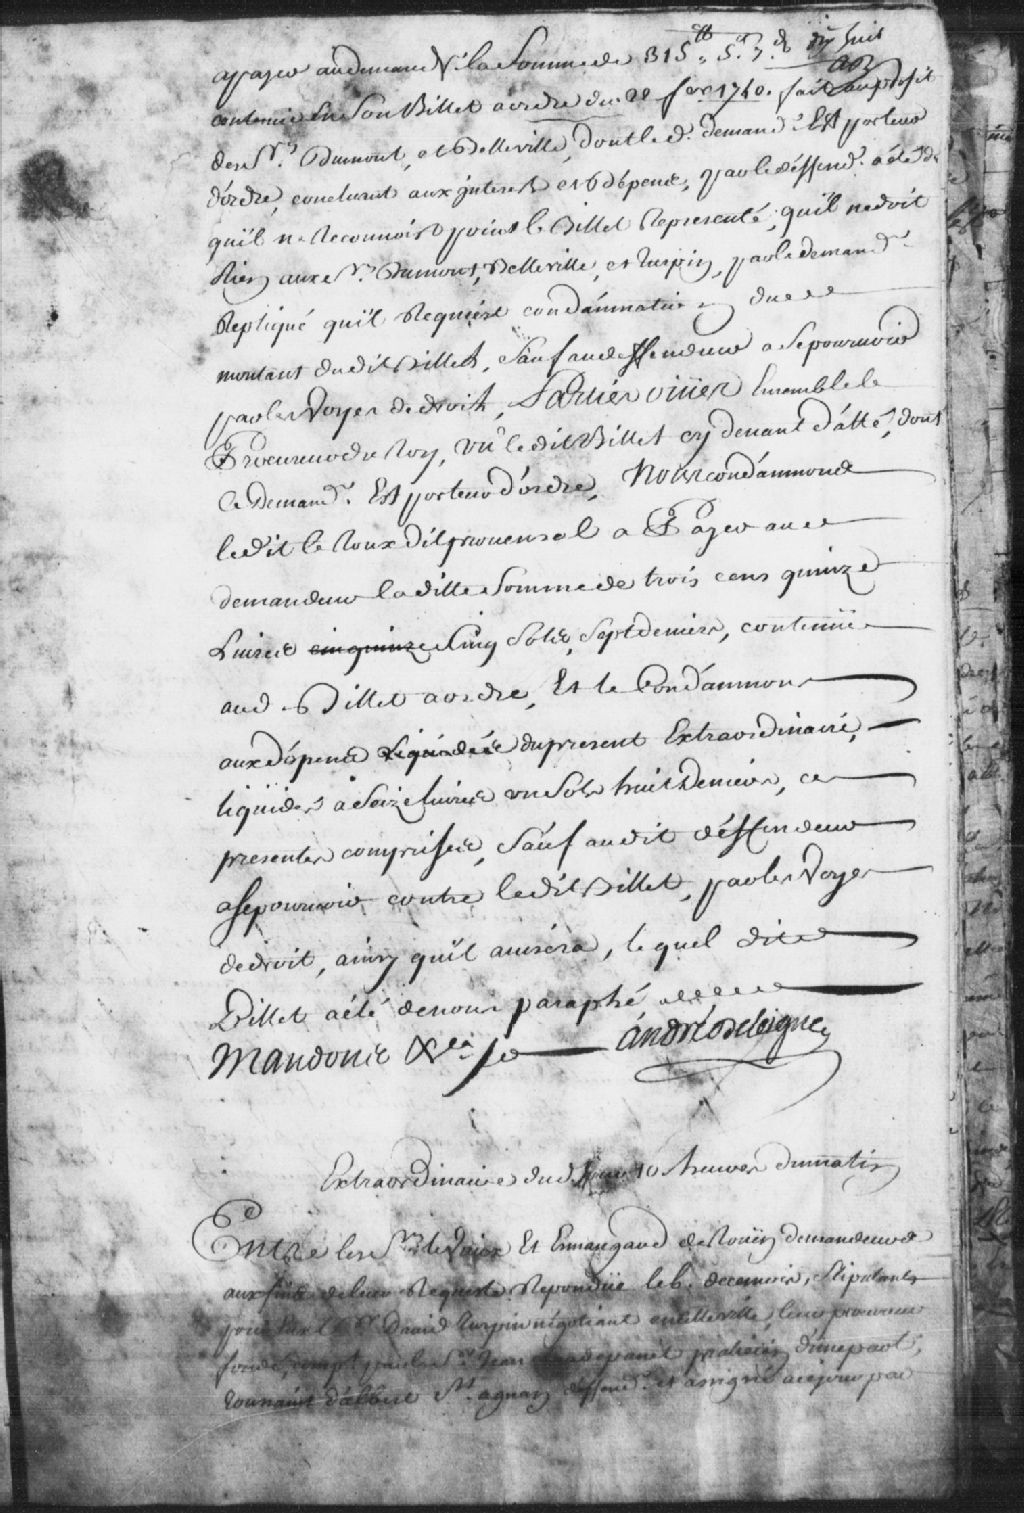 apayer audemandr. la Somme de 315 ₶ 5 s. 7 d. dix huit
contenüe En Son Billet a ordre du 28 fer. 1740. fait au profit
des Srs. Dumont, et Belleville, dont le d. demandr. Est porteur
d'ordre, concluant aux jnterest et dépens, par le déffendr. a été dit
quil ne reconnoist point le Billet Representé, quil ne doit
Rien aux Srs. Dumont, Belleville, et turpin, par le demandr.
Repliqué quil Requiert condámnation du
montant dudit Billet, Sauf au deffendeur a Se pourvoir
par les Voyes de droit, Parties oüies Ensemble le
Procureur du Roy, Vû le dit Billet cy devant datté, dont
le demandr. Est porteur d'ordre, Nous condámnons
le dit le Roux dit provensal a Payer au
demandeur la ditte Somme de trois cens quinze
Livres cinq Sols, Sept deniers, contenüe
aud. Billet a ordre, Et le Condámnons
aux dépens du present Extraordinaire,
liquidés a Seize livres un Sols huit Deniers, ces
presentes comprises, Sauf audit déffendeur
a se pourvoir contre le dit Billet, par les Voyes
de droit, ainsy quil avisera, le quel dit
Billet a été de nous paraphé
André Deleigne

Extraordinaire dud. jour 10 heures du matin
Entre les Srs. le Vieux Et Ermangard de Roüen demandeurs
aux fins de leur Requeste Repondüe le 6. decembre, Stipulants
pour Eux le Sr. David turpin négotiant en cette ville, leur procureur
fondé, compt. par le Sr. Jean praticien d'une part,
agnan deffendr. et assigné a ce jour par